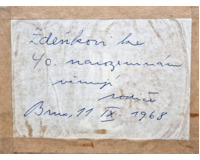 Zdeňkovi ke
40. narozeninám
věnují
rodiče
Brno, 11 IX 1968